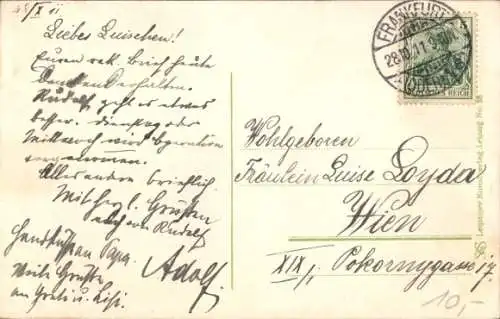 28/X 11
Liebes Luischen!
Euren rek. Brief heute
dankend erhalten.
Rudolf geht es etwas
besser. Dienstag oder
Mittwoch wird Operation
vorgenommen.
Alles andere brieflich.
Mit herzl. Grüßen
auch von Rudolf
Adolf
Handkuss an Papa.
Viele Grüße
an Gretl u. Lisi.
FRANKFURT
28.10.11
REICH
Wohlgeboren
Fräulein Luise Loyda
Wien
XIX/1 Pokornygasse 17.
Leipzig No.
10,-